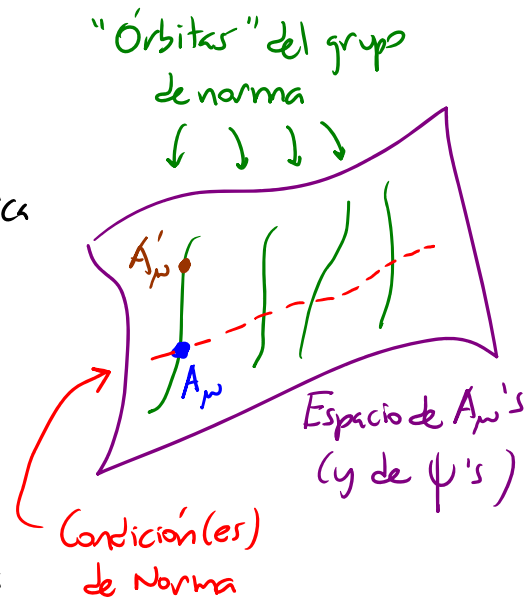 "Órbitas" del grupo
de norma
ica
A'μ
Aμ
Espacio de Aμ's
(y de ψ's)
Condición(es)
de Norma